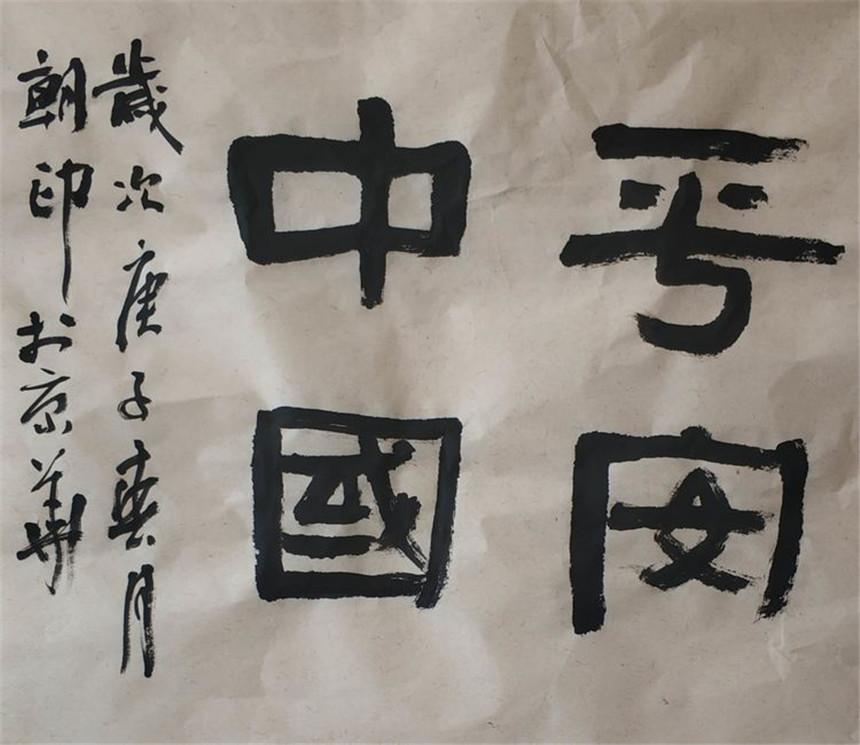 平安
中國
歲次庚子春月
朝印於京華